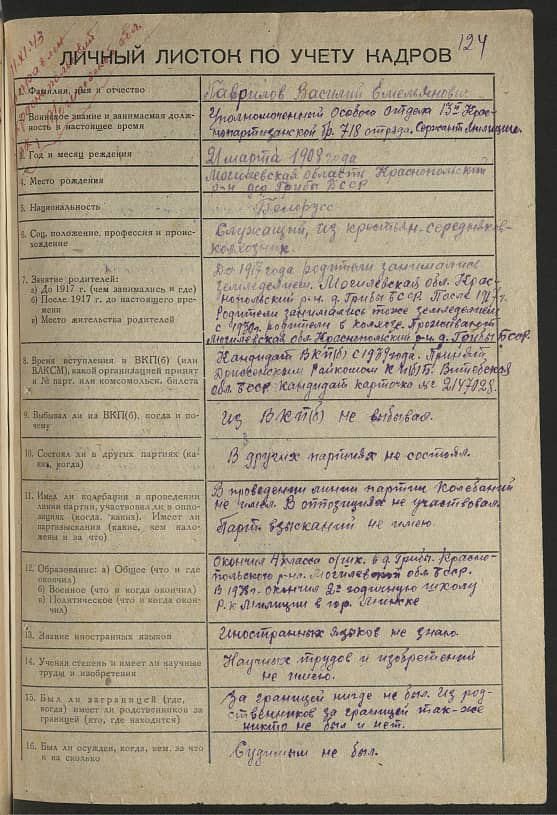 124
11.XI.43
ЛИЧНЫЙ ЛИСТОК ПО УЧЕТУ КАДРОВ
1. Фамилия, имя и отчество
Гаврилов Василий Емельянович
2. Воинское звание и занимаемая долж-
ность в настоящее время
Уполномоченный Особого отдела 13й Крас-
нопартизанской бр. 718 отряда. Сержант Милиции.
3. Год и месяц рождения
21 марта 1908 года
4. Место рождения
Могилевская область Краснопольский
р-н дер Грибы БССР
5. Национальность
Белорусс
6. Соц. положение, профессия и проис-
хождение
Служащий, из крестьян. середняков-
колхозник.
7. Занятие родителей:
а) До 1917 г. (чем занимались и где)
б) После 1917 г. до настоящего вре-
мени
в) Место жительства родителей
До 1917 года родители занимались
земледелием. Могилевская обл. Крас-
нопольский р-н. д. Грибы БССР. После 1917 г.
Родители занимались тоже земледелием
с 1930г. родители в колхозе. Проживают
Могилевская обл. Краснопольский р-н. д. Грибы БССР.
8. Время вступления в ВКП(б) (или
ВЛКСМ), какой организацией принят
и № парт. или комсомольск. билета
Кандидат ВКП(б) с 1939 года. Принят
Дриссенским Райкомом КП(б)Б. Витебская
обл. БССР. Кандидат карточка № 2147028.
9. Выбывал ли из ВКП(б), когда и по-
чему
Из ВКП(б) не выбывал.
10. Состоял ли в других партиях (ка-
ких, когда)
В других партиях не состоял.
11. Имел ли колебания в проведении
линии партии, участвовал ли в оппо-
зициях (когда, каких). Имеет ли
партвзыскания (какие, кем нало-
жены и за что)
В проведении линии партии Колебаний
не имел. В оппозициях не участвовал.
Парт. взысканий не имею.
12. Образование: а) Общее (что и где
окончил)
б) Военное (что и когда окончил)
в) Политическое (что и когда окон-
чил)
Окончил 4 класса в д. Грибы. Красно-
польского р-на. Могилевской обл. БССР.
В 1938г. окончил 2х годичную школу
Р.К Милиции в гор. Минске
13. Знание иностранных языков
Иностранных языков не знаю.
14. Ученая степень и имеет ли научные
труды и изобретения
Научных трудов и изобретений
не имею.
15. Был ли заграницей (где,
когда) имеет ли родственников за
границей (кто, где находится)
За границей нигде не был. Из род-
ственников за границей так-же
никто не был и нет.
16. Был ли осужден, когда, кем, за что
и на сколько
Судимым не был.